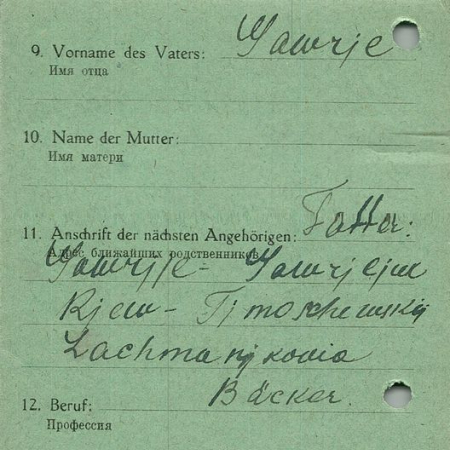 9. Vorname des Vaters: Gawrje
Имя отца
10. Name der Mutter:
Имя матери
11. Anschrift der nächsten Angehörigen: Fatter:
Адрес ближайших родственников
Kjew - Timoschewskij
Bäcker.
12. Beruf:
Профессия